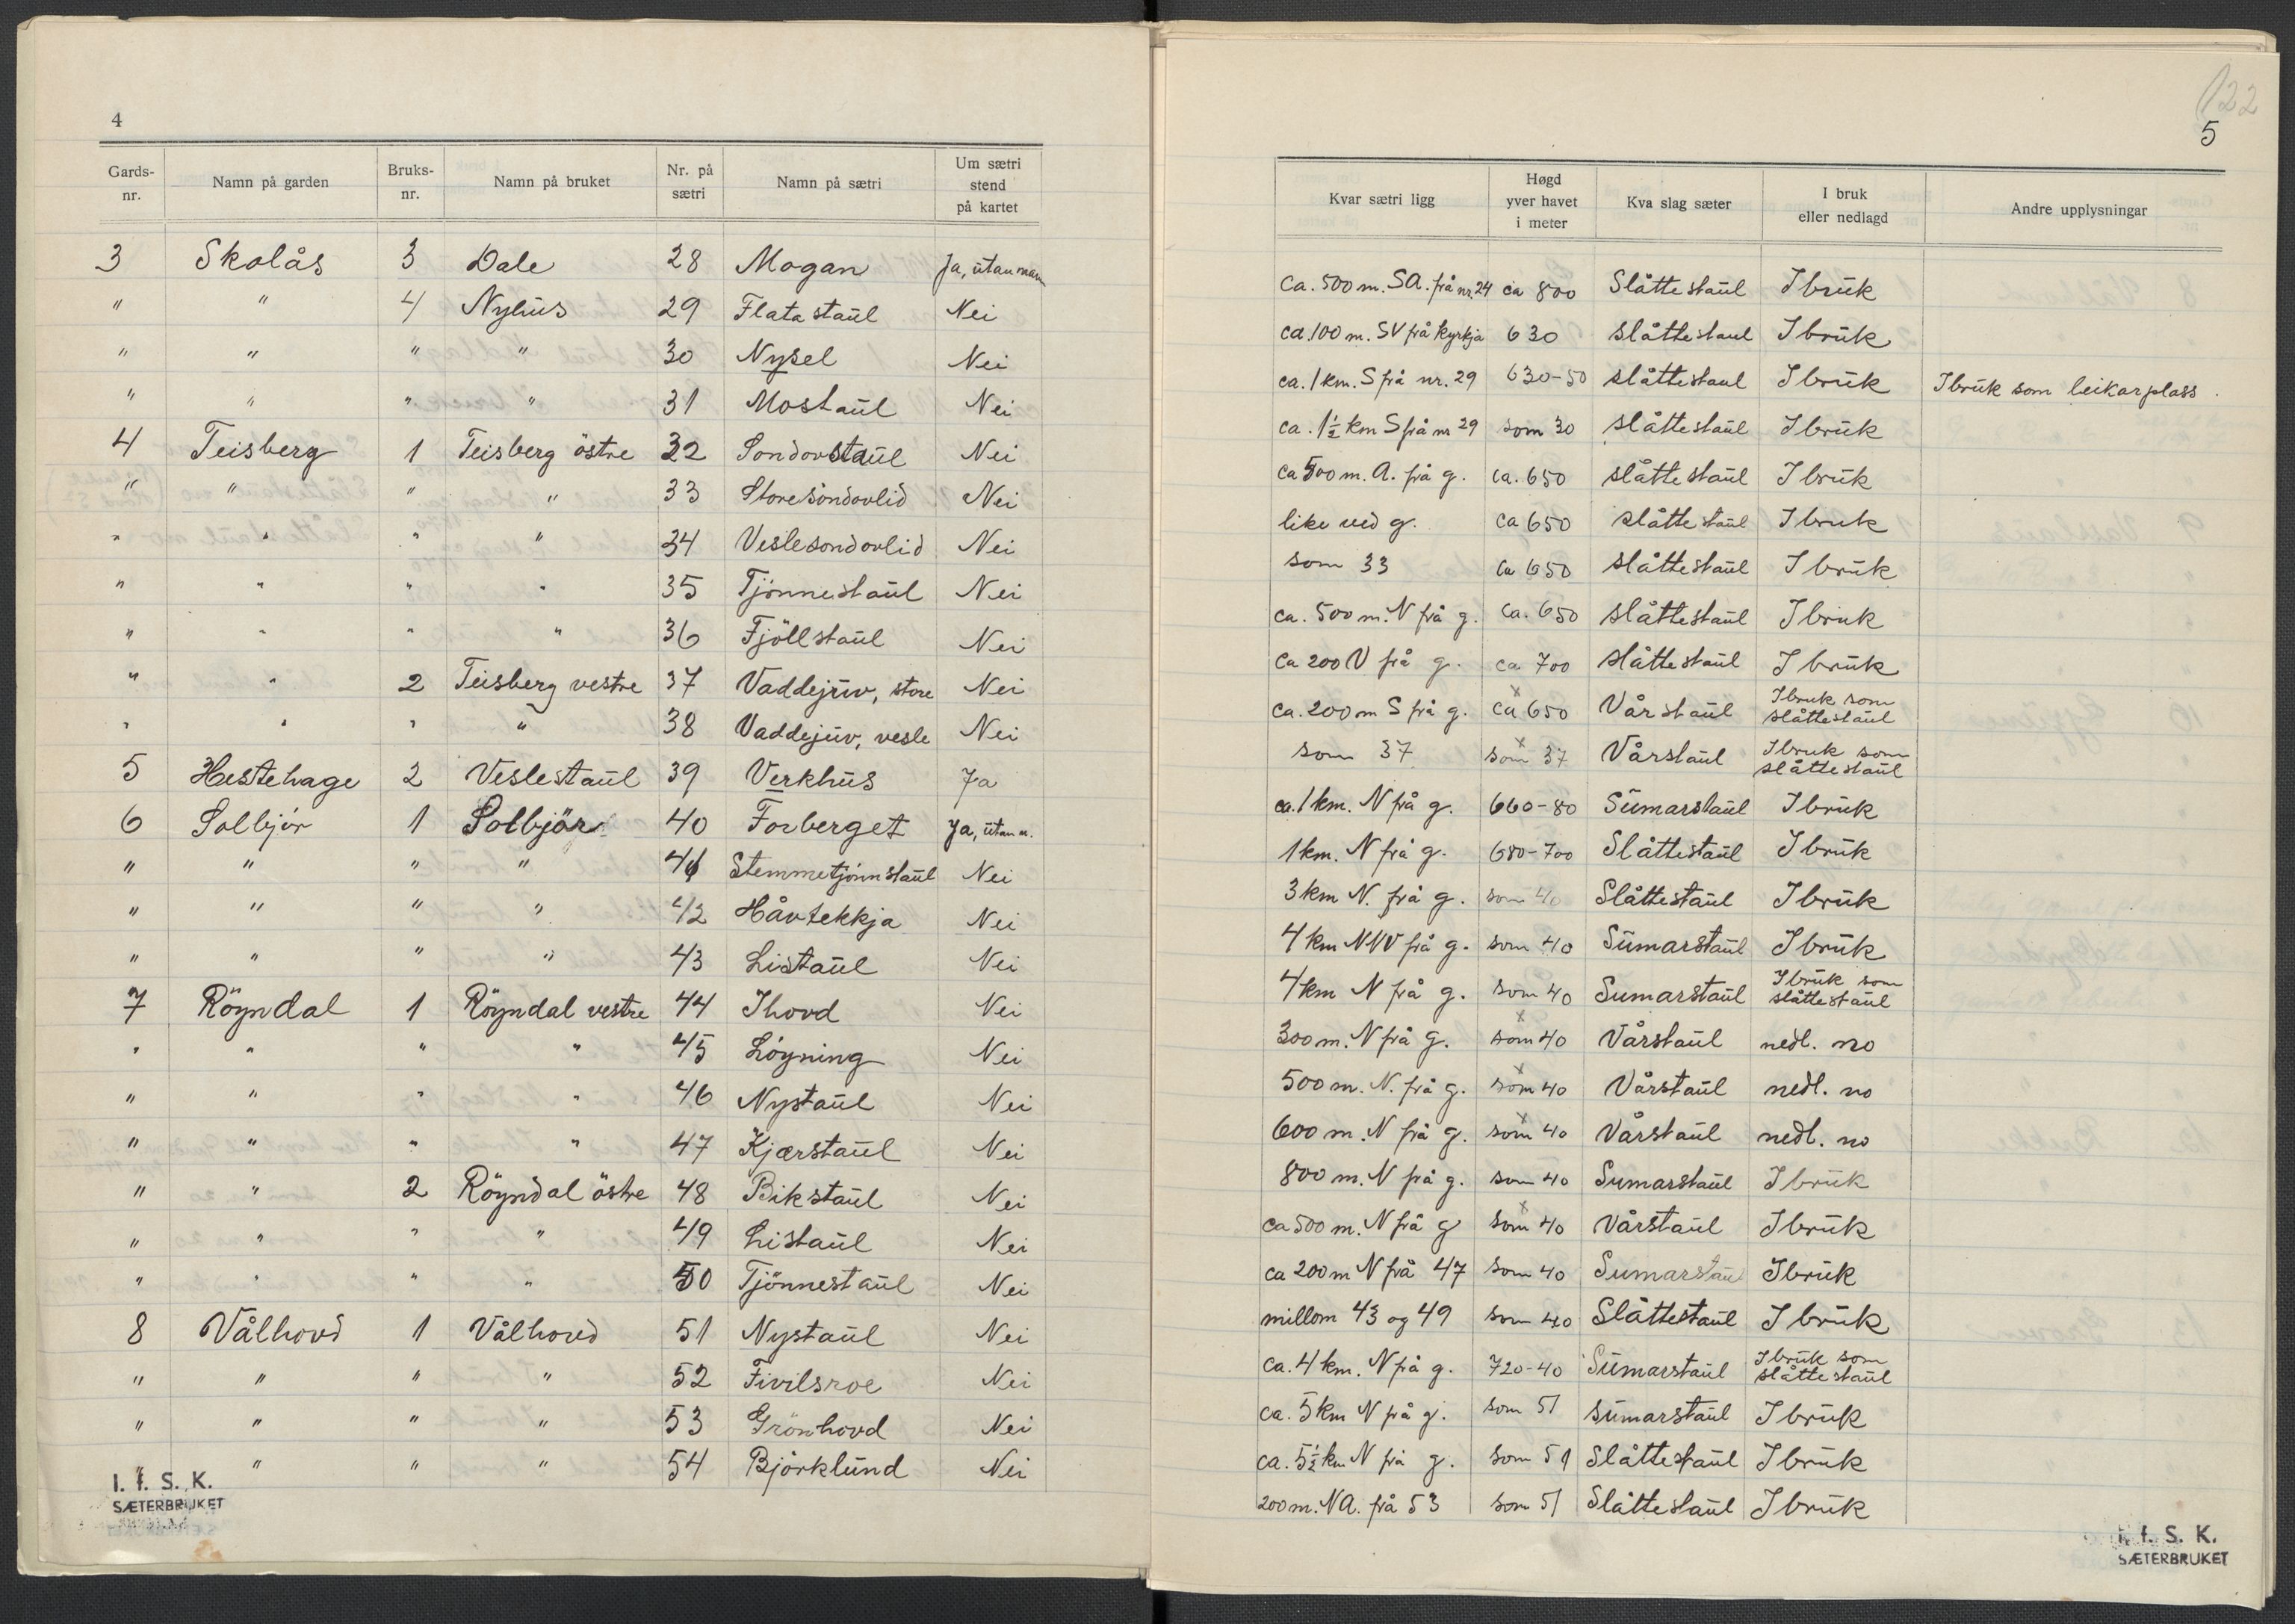 4
Gards-nr. Namn på garden Bruks-nr. Namn på bruket Nr. på sætri Namn på sætri Um sætri stend på kartet
3 Skolås 3 Dale 28 Mogan Ja, utan namn
" " 4 Nyhus 29 Flatastaul Nei
" " " " 30 Nysel Nei
" " " " 31 Mostaul Nei
4 Teisberg 1 Teisberg östre 32 Sondovstaul Nei
" " " " 33 Storesondovlid Nei
" " " " 34 Veslesondovlid Nei
" " " " 35 Tjönnestaul Nei
" " " " 36 Fjöllstaul Nei
" " 2 Teisberg vestre 37 Vaddejuv, store Nei
" " " " 38 Vaddejuv, vesle Nei
5 Hestehage 2 Veslestaul 39 Verkhus Ja
6 Solbjör 1 Solbjör 40 Forberget Ja, utan n.
" " " " 41 Stemmetjönnstaul Nei
" " " " 42 Håvtekkja Nei
" " " " 43 Listaul Nei
7 Röyndal 1 Röyndal vestre 44 Ihovd Nei
" " " " 45 Löyning Nei
" " " " 46 Nystaul Nei
" " " " 47 Kjærstaul Nei
" " 2 Röyndal östre 48 Bikstaul Nei
" " " " 49 Listaul Nei
" " " " 50 Tjönnestaul Nei
8 Vålhovd 1 Vålhovd 51 Nystaul Nei
" " " " 52 Fivilsroe Nei
" " " " 53 Grönhovd Nei
" " " " 54 Björklund Nei
I. f. S. K.
SÆTERBRUKET
122
5
Kvar sætri ligg Høgd yver havet i meter Kva slag sæter I bruk eller nedlagd Andre upplysningar
ca. 500 m. SA. frå nr. 24 ca 800 Slåttestaul I bruk
ca. 100 m. SV frå kyrkja 630 slåttestaul I bruk
ca. 1 km. S frå nr. 29 630-50 slåttestaul I bruk I bruk som leikarplass.
ca. 1½ km S frå nr 29 som 30 slåttestaul I bruk
ca 500 m. A. frå g. ca. 650 slåttestaul I bruk
like ved g. ca 650 slåttestaul I bruk
som 33 ca 650 slåttestaul I bruk
ca. 500 m. N frå g. ca. 650 slåttestaul I bruk
ca 200 V frå g. ca 700 slåttestaul I bruk
ca. 200 m S frå g. ca x 650 Vårstaul I bruk som slåttestaul
som 37 som x 37 Vårstaul I bruk som slåttestaul
ca. 1 km. N frå g. 660-80 Sumarstaul I bruk
1 km. N frå g. 680-700 Slåttestaul I bruk
3 km N. frå g. som 40 Slåttestaul I bruk
4 km NNV frå g. som 40 Sumarstaul I bruk
4 km N frå g. som 40 Sumarstaul I bruk som slåttestaul
300 m. N frå g. som x 40 Vårstaul nedl. no
500 m. N. frå g. som x 40 Vårstaul nedl. no
600 m. N frå g. som x 40 Vårstaul nedl. no
800 m. N frå g. som 40 Sumarstaul I bruk
ca 500 m. N frå g som x 40 Vårstaul I bruk
ca 200 m N frå 47 som 40 Sumarstaul I bruk
millom 43 og 49 som 40 Slåttestaul I bruk
ca. 4 km. N frå g. 720-40 Sumarstaul I bruk som slåttestaul
ca. 5 km N frå g. som 51 sumarstaul I bruk
ca. 5½ km N frå g. som 51 Slåttestaul I bruk
200 m. NA. frå 53 som 51 Slåttestaul I bruk
I. f. S. K.
SÆTERBRUKET